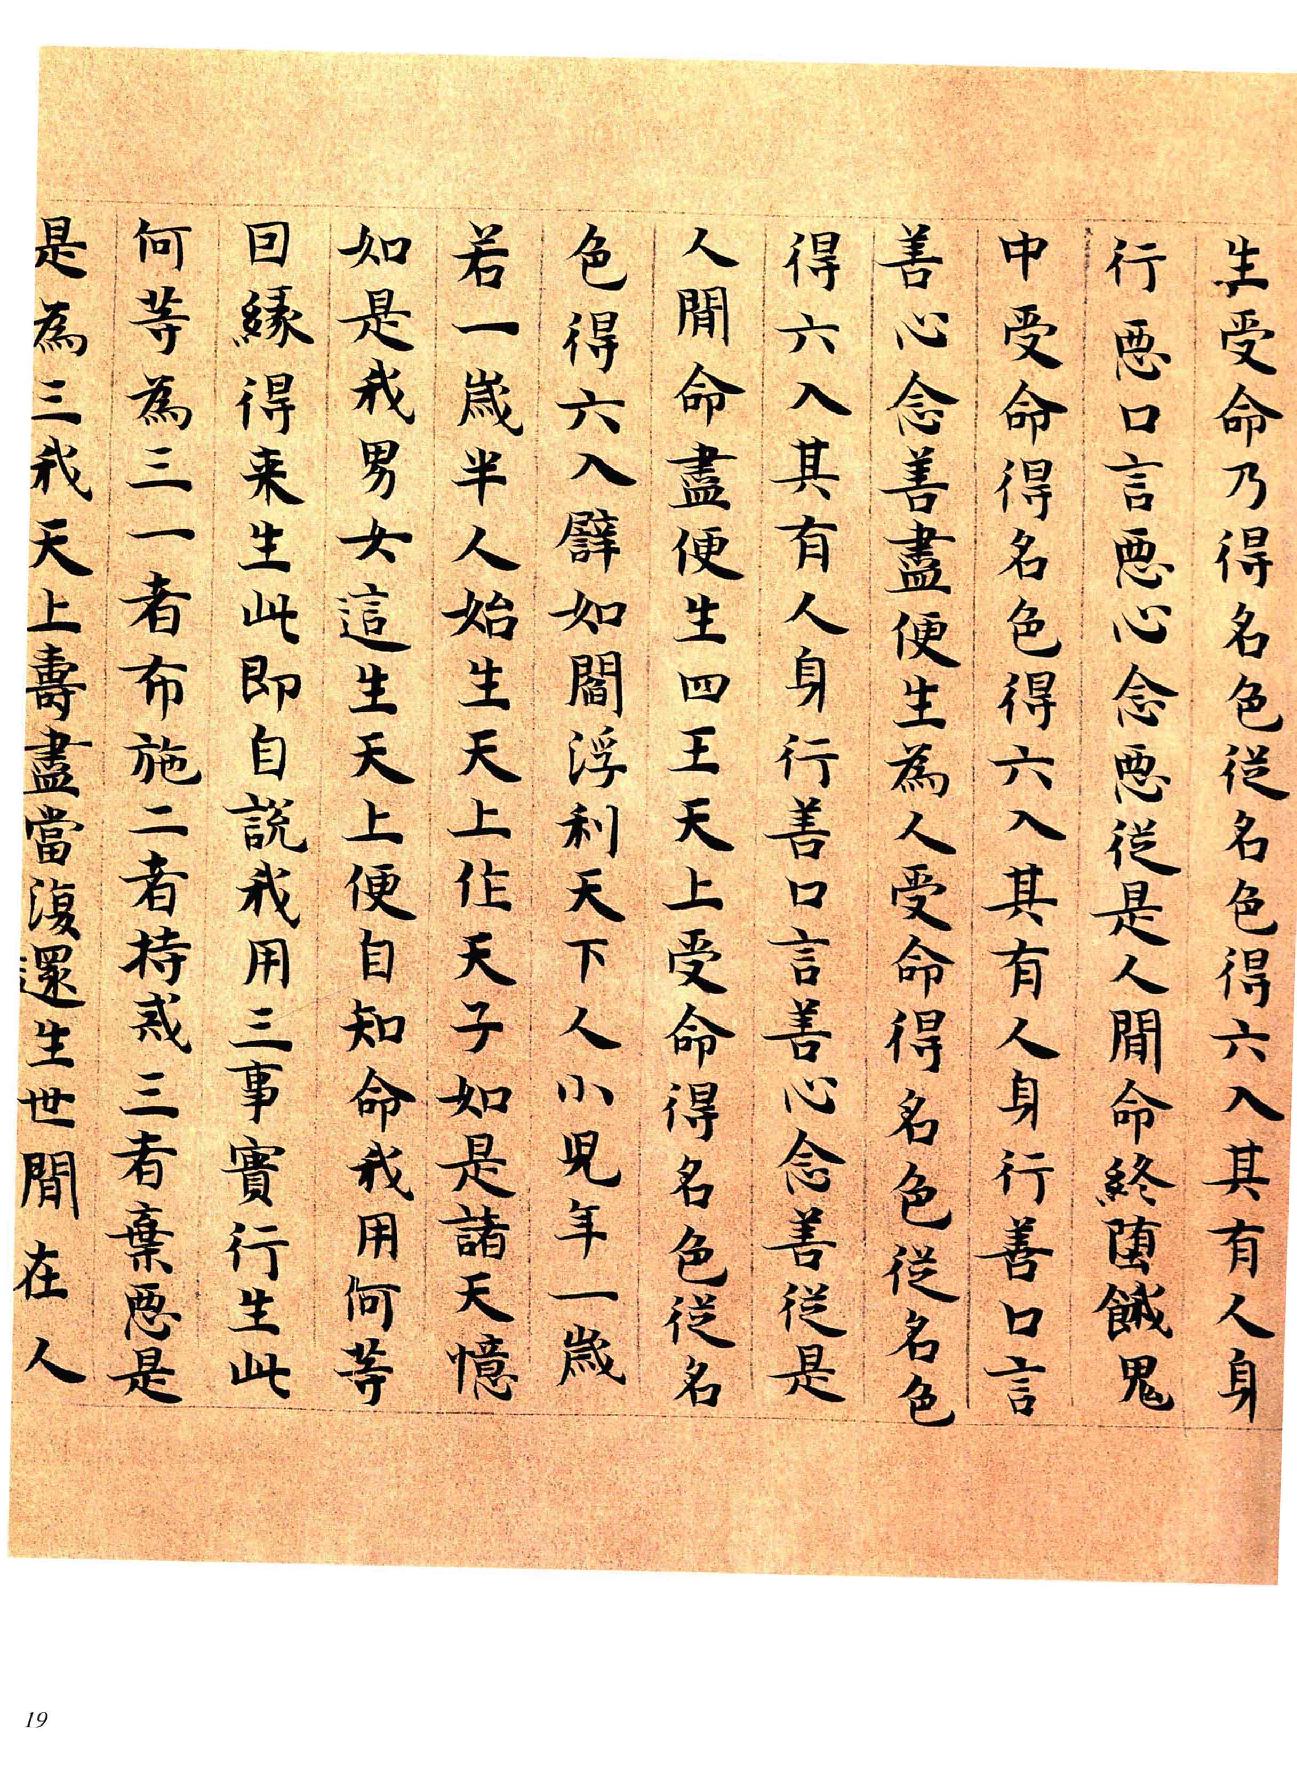 生受命乃得名色従名色得六入其有人身
行惡口言惡心念惡従是人閒命終堕餓鬼
中受命得名色得六入其有人身行善口言
善心念善盡便生為人受命得名色従名色
得六入其有人身行善口言善心念善従是
人閒命盡便生四王天上受命得名色従名
色得六入譬如閻浮利天下人小児年一歲
若一歲半人始生天上作天子如是諸天憶
如是我男女這生天上便自知命我用何等
因緣得来生此即自說我用三事實行生此
何等為三一者布施二者持戒三者棄惡是
是為三我天上壽盡當復還生世間在人
19